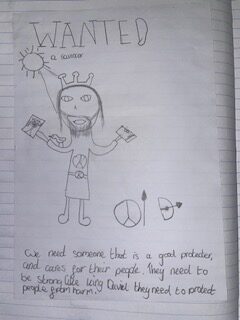 WANTED
a saviour
We need someone that is a good protecter,
and cares for their people. They need to
be strong like King David they need to protect
people from harm.